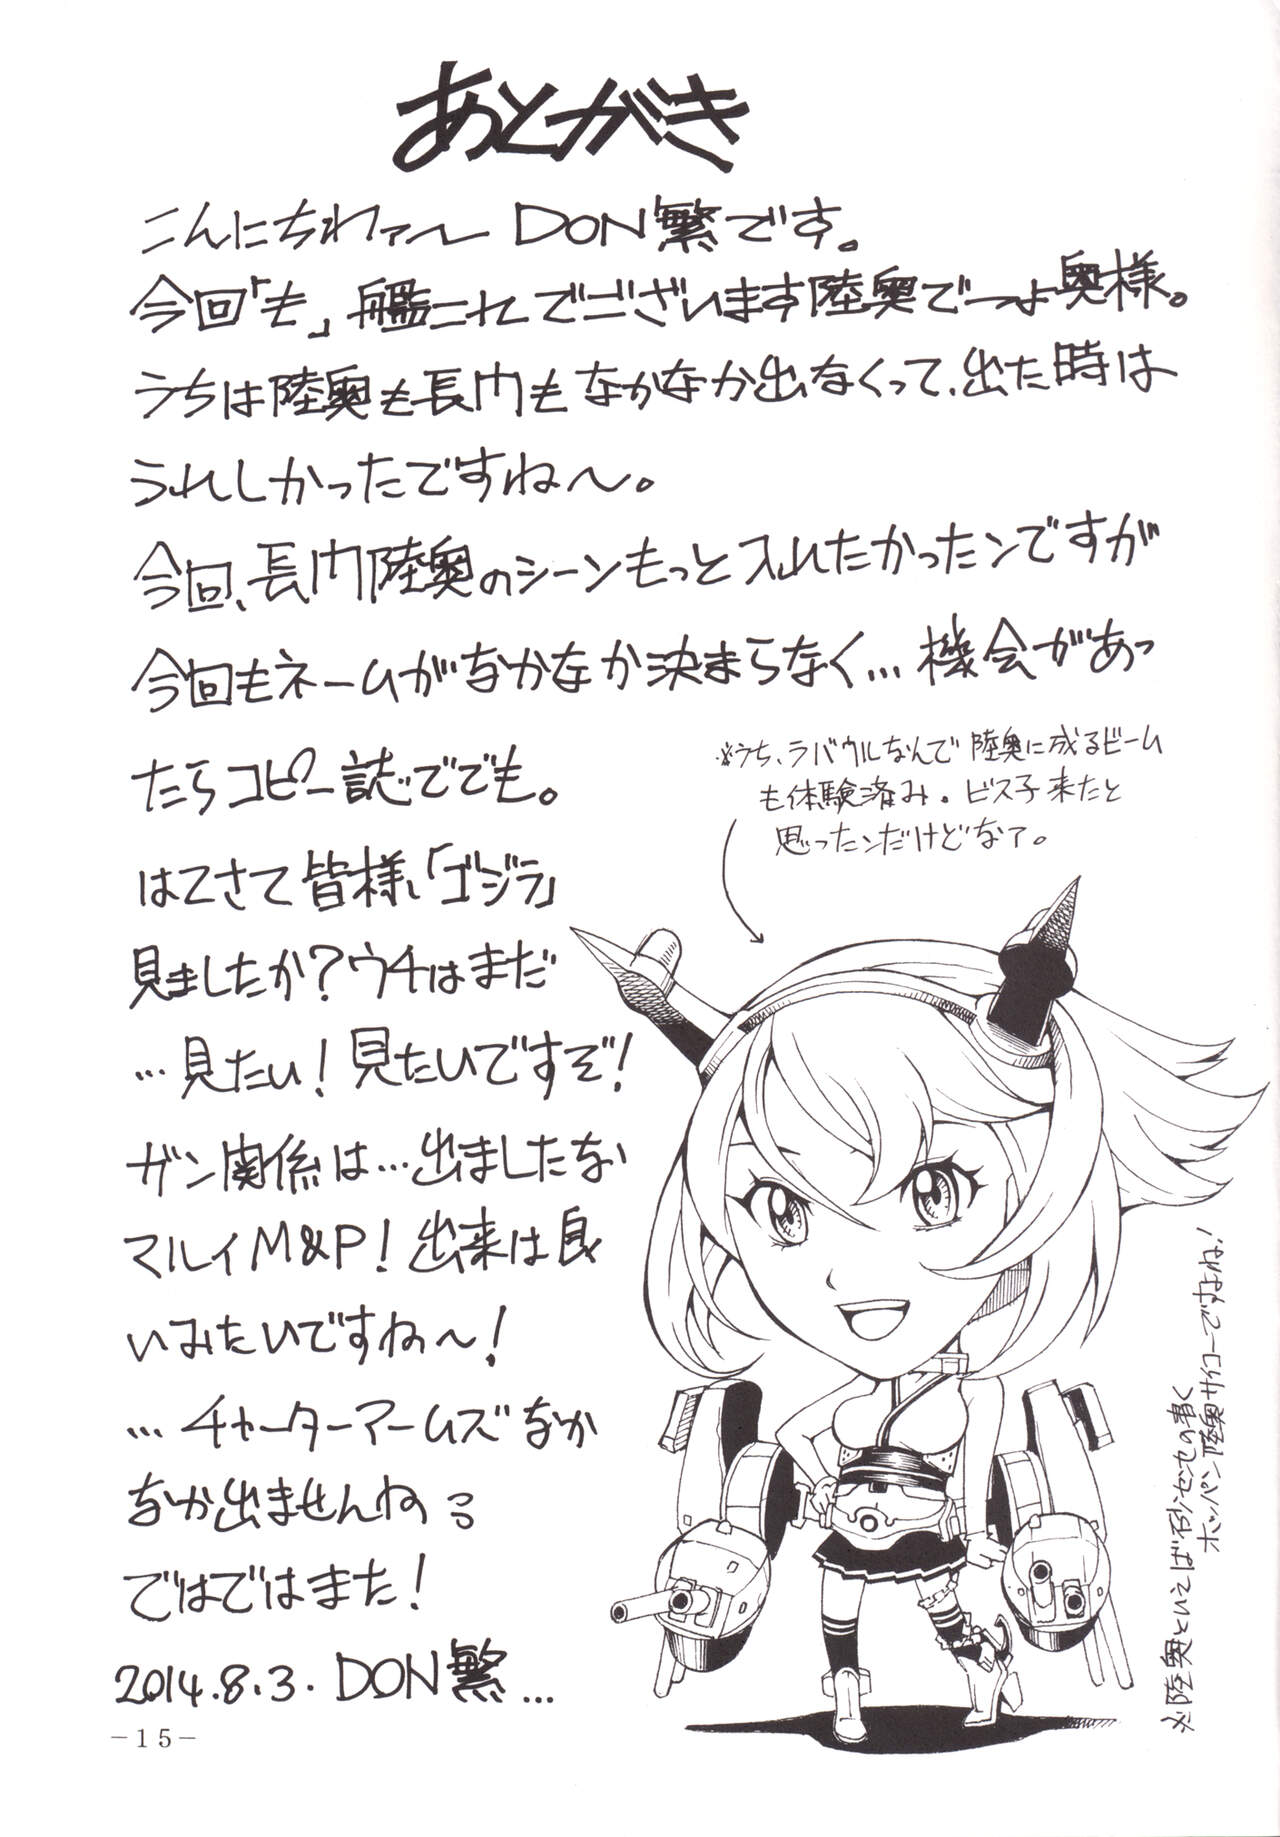 あとがき
こんにちわァ〜 DON繁です。
今回「も」艦これでございます陸奥でつよ奥様。
うちは陸奥も長門もなかなか出なくって、出た時は
うれしかったですね〜。
今回、長門陸奥のシーンもっと入れたかったンですが
今回もネームがなかなか決まらなく…機会があっ
たらコピー誌ででも。
※うち、ラバウルなんで陸奥に成るビーム
も体験済み。ビス子来たと
思ったンだけどなァ。
はてさて皆様、「ゴジラ」
見ましたか?ウチはまだ
…見たい!見たいですぞ!
ガン関係は…出ましたな
マルイM&P!出来は良
いみたいですね〜!
…チャーターアームズなか
なか出ませんねっ
ではではまた!
2014.8.3. DON繁…
-15-
※陸奥といえば
ホッパン陸奥